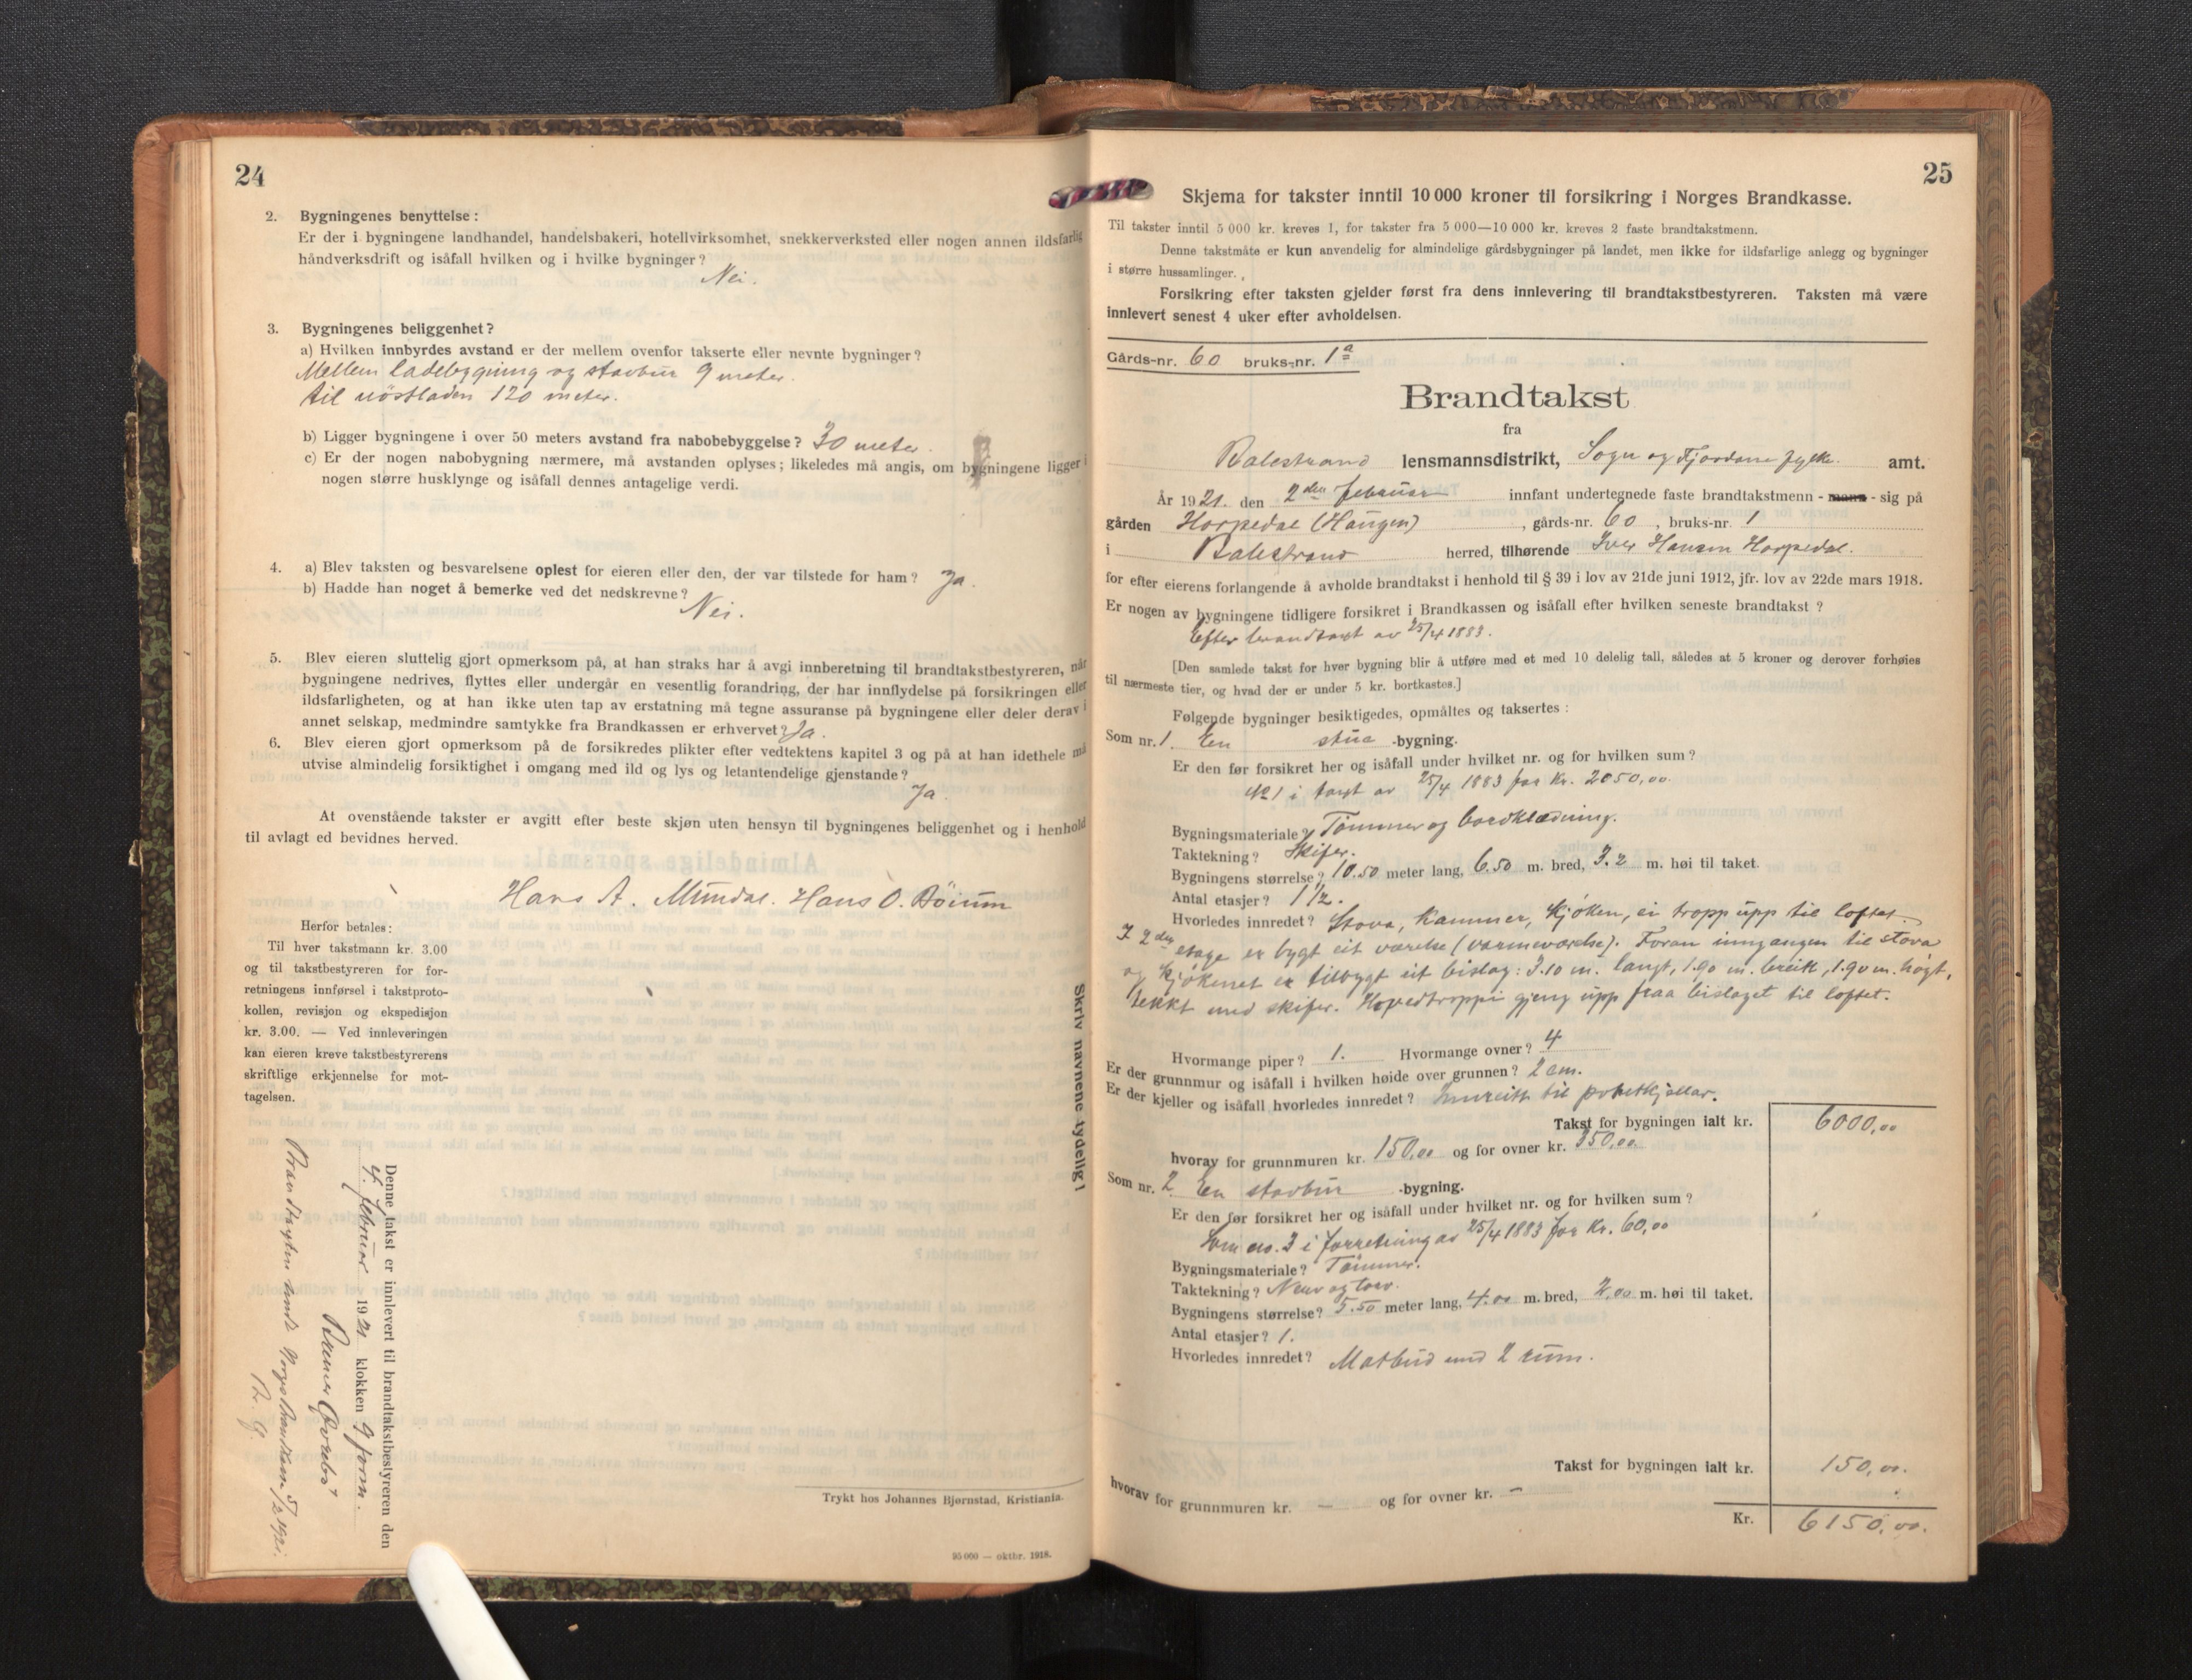 24
2. Bygningenes benyttelse:
Er der i bygningene landhandel, handelsbakeri, hotellvirksomhet, snekkerverksted eller nogen annen ildsfarlig
håndverksdrift og isåfall hvilken og i hvilke bygninger?
Nei.
3. Bygningenes beliggenhet?
a) Hvilken innbyrdes avstand er der mellem ovenfor takserte eller nevnte bygninger?
Mellem ladebygning og stabbur 9 meter.
til nöstladen 120 meter.
b) Ligger bygningene i over 50 meters avstand fra nabobebyggelse? 30 meter.
c) Er der nogen nabobygning nærmere, må avstanden oplyses; likeledes må angis, om bygningene ligger i
nogen større husklynge og isåfall dennes antagelige verdi.
4. a) Blev taksten og besvarelsene oplest for eieren eller den, der var tilstede for ham? Ja.
b) Hadde han noget å bemerke ved det nedskrevne?
Nei.
5. Blev eieren sluttelig gjort opmerksom på, at han straks har å avgi innberetning til brandtakstbestyreren, når
bygningene nedrives, flyttes eller undergår en vesentlig forandring, der har innflydelse på forsikringen eller
ildsfarligheten, og at han ikke uten tap av erstatning må tegne assuranse på bygningene eller deler derav i
annet selskap, medmindre samtykke fra Brandkassen er erhvervet? Ja.
6. Blev eieren gjort opmerksom på de forsikredes plikter efter vedtektens kapitel 3 og på at han idethele må
utvise almindelig forsiktighet i omgang med ild og lys og letantendelige gjenstande?
Ja.
At ovenstående takster er avgitt efter beste skjøn uten hensyn til bygningenes beliggenhet og i henhold
til avlagt ed bevidnes herved.
Hans A. Mundal. Hans O. Böium
Herfor betales:
Til hver takstmann kr. 3.00
og til takstbestyreren for for-
retningens innførsel i takstproto-
kollen, revisjon og ekspedisjon
kr. 3.00. — Ved innleveringen
kan eieren kreve takstbestyrerens
skriftlige erkjennelse for mot-
tagelsen.
Skriv navnene tydelig!
Denne takst er innlevert til brandtakstbestyreren den
4. februar 1921 klokken 9 form.
Brandtaxten sendt Norges Brandkasse 5/2 1921.
Trykt hos Johannes Bjørnstad, Kristiania.
95 000 — oktbr. 1918.
25
Skjema for takster inntil 10 000 kroner til forsikring i Norges Brandkasse.
Til takster inntil 5 000 kr. kreves 1, for takster fra 5 000—10 000 kr. kreves 2 faste brandtakstmenn.
Denne takstmåte er kun anvendelig for almindelige gårdsbygninger på landet, men ikke for ildsfarlige anlegg og bygninger
i større hussamlinger.
Forsikring efter taksten gjelder først fra dens innlevering til brandtakstbestyreren. Taksten må være
innlevert senest 4 uker efter avholdelsen.
Gårds-nr. 60 bruks-nr. 1a
Brandtakst
fra
Balestrand lensmannsdistrikt, Sogn og Fjordane fylke. amt.
År 1921. den 2den februar innfant undertegnede faste brandtakstmenn - mann - sig på
gården Horpedal (Haugen), gårds-nr. 60, bruks-nr. 1
i Balestrand herred, tilhørende Iver Hansen Horpedal.
for efter eierens forlangende å avholde brandtakst i henhold til § 39 i lov av 21de juni 1912, jfr. lov av 22de mars 1918.
Er nogen av bygningene tidligere forsikret i Brandkassen og isåfall efter hvilken seneste brandtakst?
Efter brandtaxt av 25/4 1883.
[Den samlede takst for hver bygning blir å utføre med et med 10 delelig tall, således at 5 kroner og derover forhøies
til nærmeste tier, og hvad der er under 5 kr. bortkastes.]
Følgende bygninger besiktigedes, opmåltes og taksertes:
Som nr. 1. En stue -bygning.
Er den før forsikret her og isåfall under hvilket nr. og for hvilken sum?
No 1 i taxt av 25/4 1883 for Kr. 2050,00.
Bygningsmateriale? Tömmer og bordklædning.
Taktekning? Skifer.
Bygningens størrelse? 10.50 meter lang, 6.50 m. bred, 3.2 m. høi til taket.
Antal etasjer? 1½.
Hvorledes innredet? Stova, kammer, kjöken, ei tropp upp til loftet.
I 2den etage er bygt eit værelse (varmeværelse). Foran inngangen til stova
og kjökenet er tilbygt eit bislag: 3.10 m. langt, 1.90 m. breitt, 1.90 m. högt,
tekkt med skifer. Hovedtroppi gjeng upp fraa bislaget til loftet.
Hvormange piper? 1. Hvormange ovner? 4
Er der grunnmur og isåfall i hvilken høide over grunnen? 2 cm.
Er der kjeller og isåfall hvorledes innredet? innreitt til potetkjellar.
Takst for bygningen ialt kr. 6000,00
hvorav for grunnmuren kr. 150,00 og for ovner kr. 350,00.
Som nr. 2. En stabbur -bygning.
Er den før forsikret her og isåfall under hvilket nr. og for hvilken sum?
Som no. 3 i forretning av 25/4 1883 for Kr. 60,00
Bygningsmateriale? Tömmer.
Taktekning? Never og torv.
Bygningens størrelse? 5.50 meter lang, 4.00 m. bred, 2,00 m. høi til taket.
Antal etasjer? 1.
Hvorledes innredet? Matbud med 2 rum.
Takst for bygningen ialt kr. 150,00.
hvorav for grunnmuren kr. — og for ovner kr. —
Kr. 6150,00.